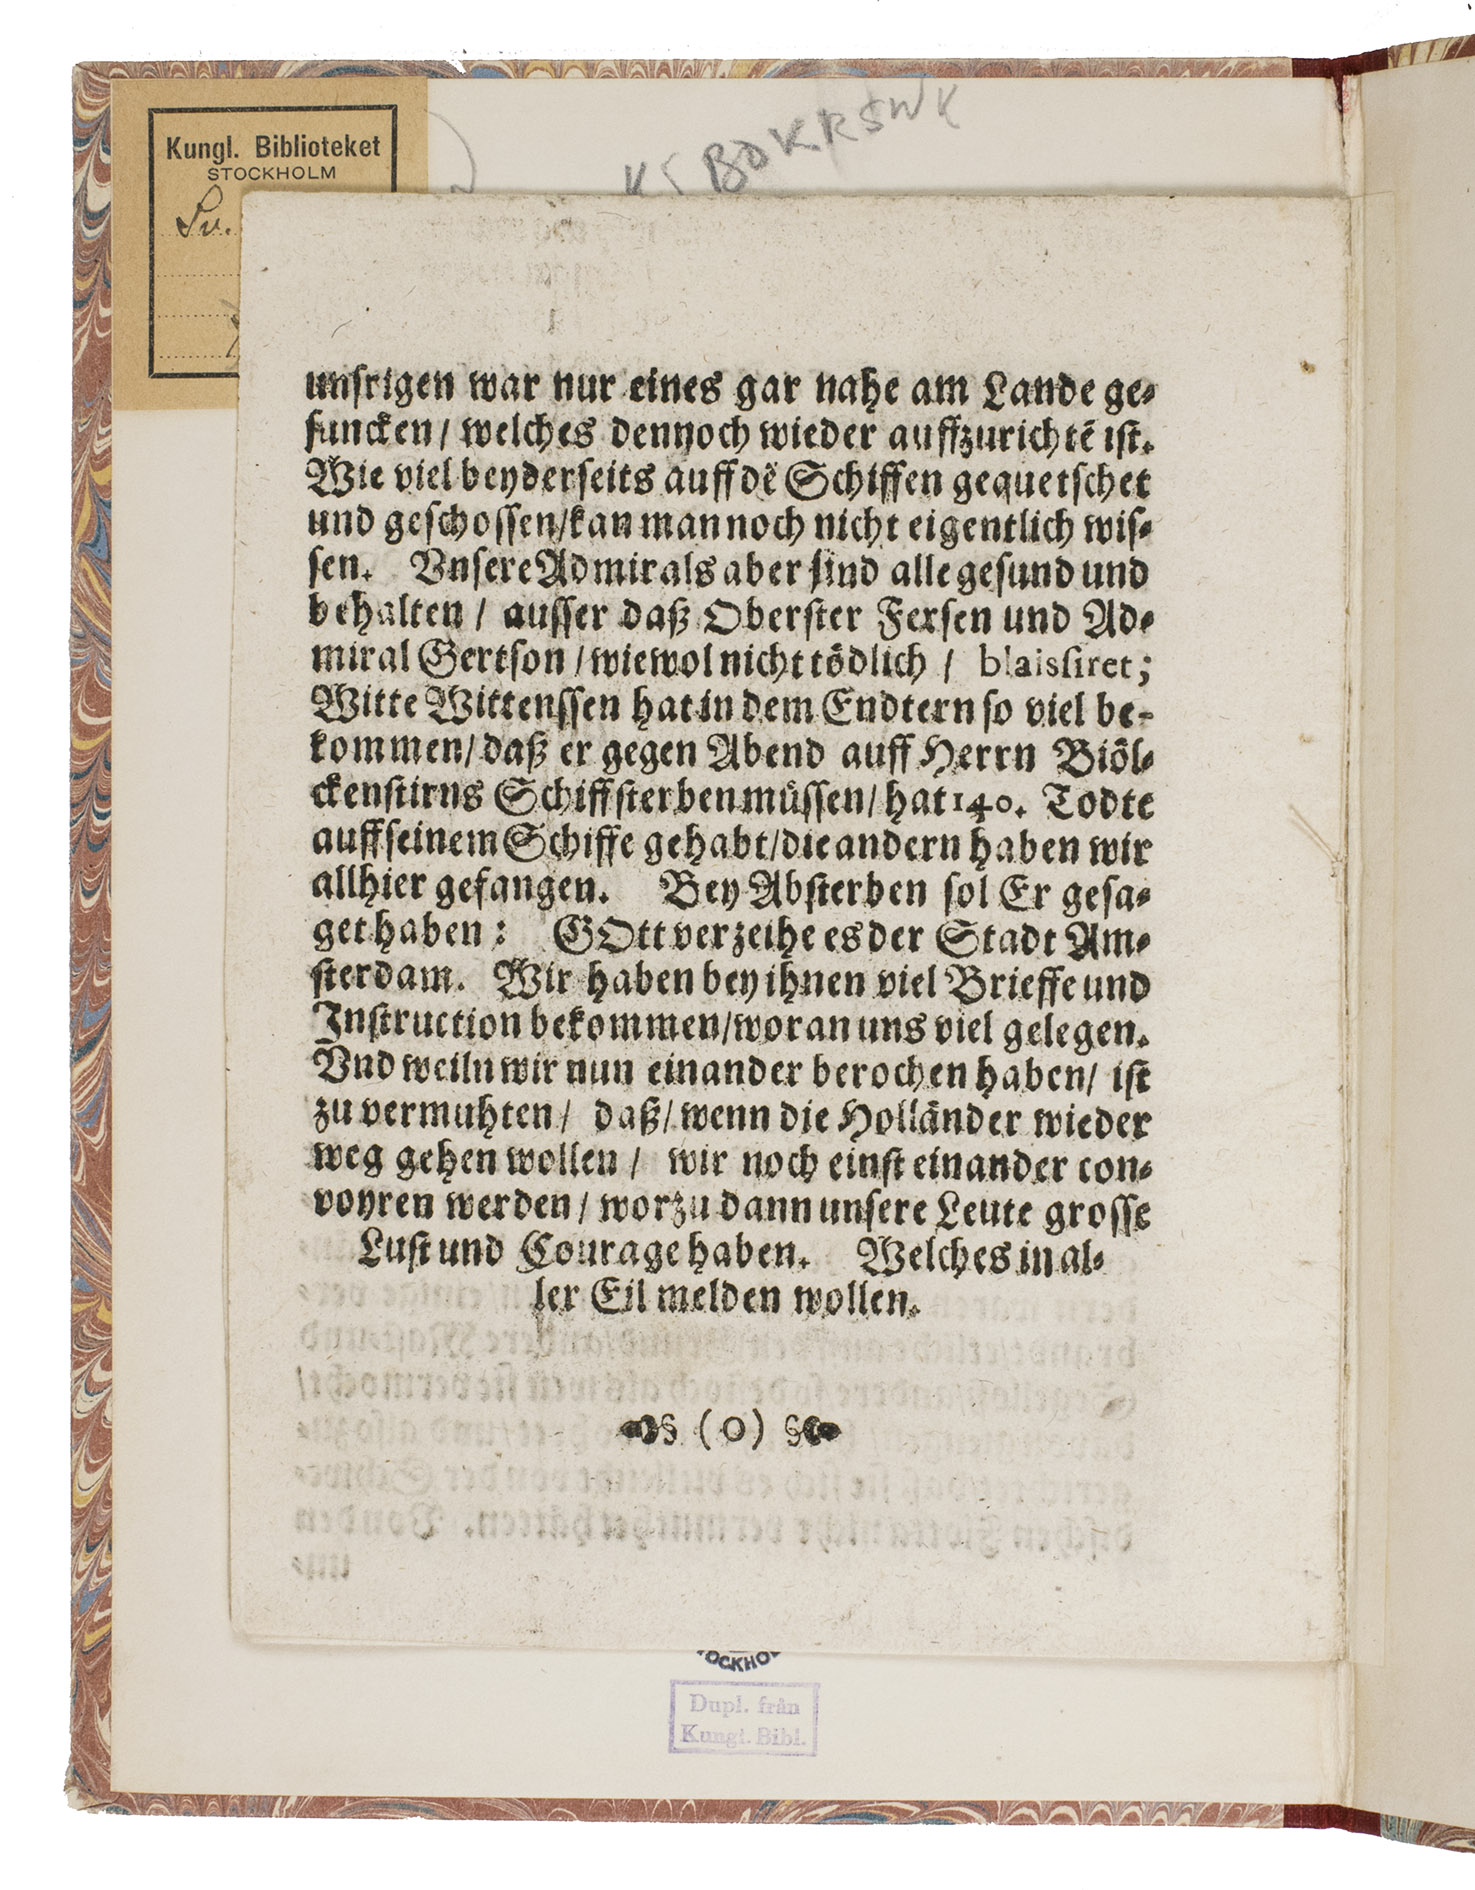 Kungl. Biblioteket
STOCKHOLM
Sv.
unsrigen war nur eines gar nahe am Lande ge-
suncken / welches dennoch wieder auffzurichtē ist.
Wie viel beyderseits auff dē Schiffen gequetschet
und geschossen/kan man noch nicht eigentlich wis-
sen. Vnsere Admirals aber sind alle gesund und
behalten / ausser daß Oberster Fersen und Ad-
miral Gertson / wiewol nicht tödlich / blaissiret;
Witte Wittenssen hat in dem Endtern so viel be-
kommen/ daß er gegen Abend auff Herrn Biöl-
ckenstirns Schiff sterben müssen/ hat 140. Todte
auff seinem Schiffe gehabt/die andern haben wir
allhier gefangen. Bey Absterben sol Er gesa-
get haben: GOtt verzeihe es der Stadt Am-
sterdam. Wir haben bey ihnen viel Brieffe und
Instruction bekommen/woran uns viel gelegen.
Vnd weiln wir nun einander berochen haben/ ist
zu vermuhten / daß/ wenn die Holländer wieder
weg gehen wollen / wir noch einst einander con-
voyren werden / worzu dann unsere Leute grosse
Lust und Courage haben. Welches in al-
ler Eil melden wollen.
§ (0) §
TOCKHO
Dupl. från
Kungl. Bibl.